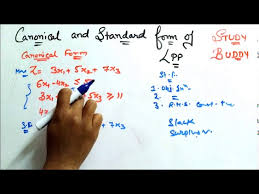 Canonical and Standard form of LPP
STUDY BUDDY
Canonical Form
Z = 3x₁ + 5x₂ + 7x₃
6x₁ - 4x₂ ≤
3x₁ 5x₃ ≥ 11
4x
+ 7x₃
S.F.
1. Obj
3. R.H.S. Const.
Slack
Surplus